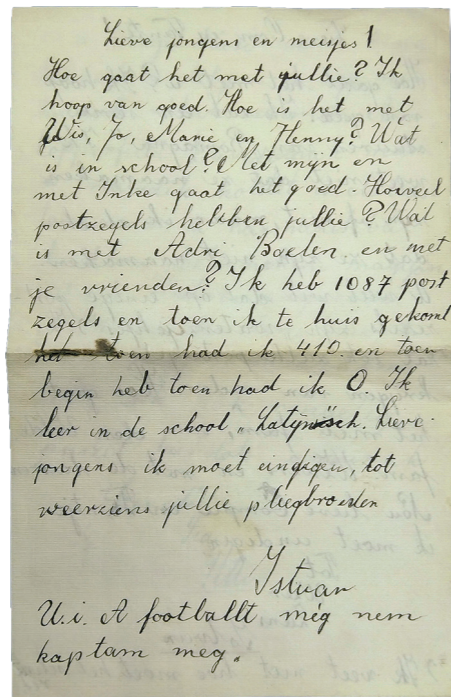 Lieve jongens en meisjes!
Hoe gaat het met jullie? Ik
hoop van goed. Hoe is het met
Wis, Jo, Marie en Henny? Wat
is in school? Met mijn en
met Inke gaat het goed. Hoeveel
postzegels hebben jullie? Wat
is met Adri Boelen en met
je vrienden? Ik heb 1087 post
zegels en toen ik te huis gekomt
toen had ik 410. en toen
begin heb toen had ik 0 Ik
leer in de school „Latijnisch. Lieve
jongens ik moet eindigen, tot
weerziens jullie pleegbroeden
Istvan
U.i. A footballt még nem
kaptam meg.